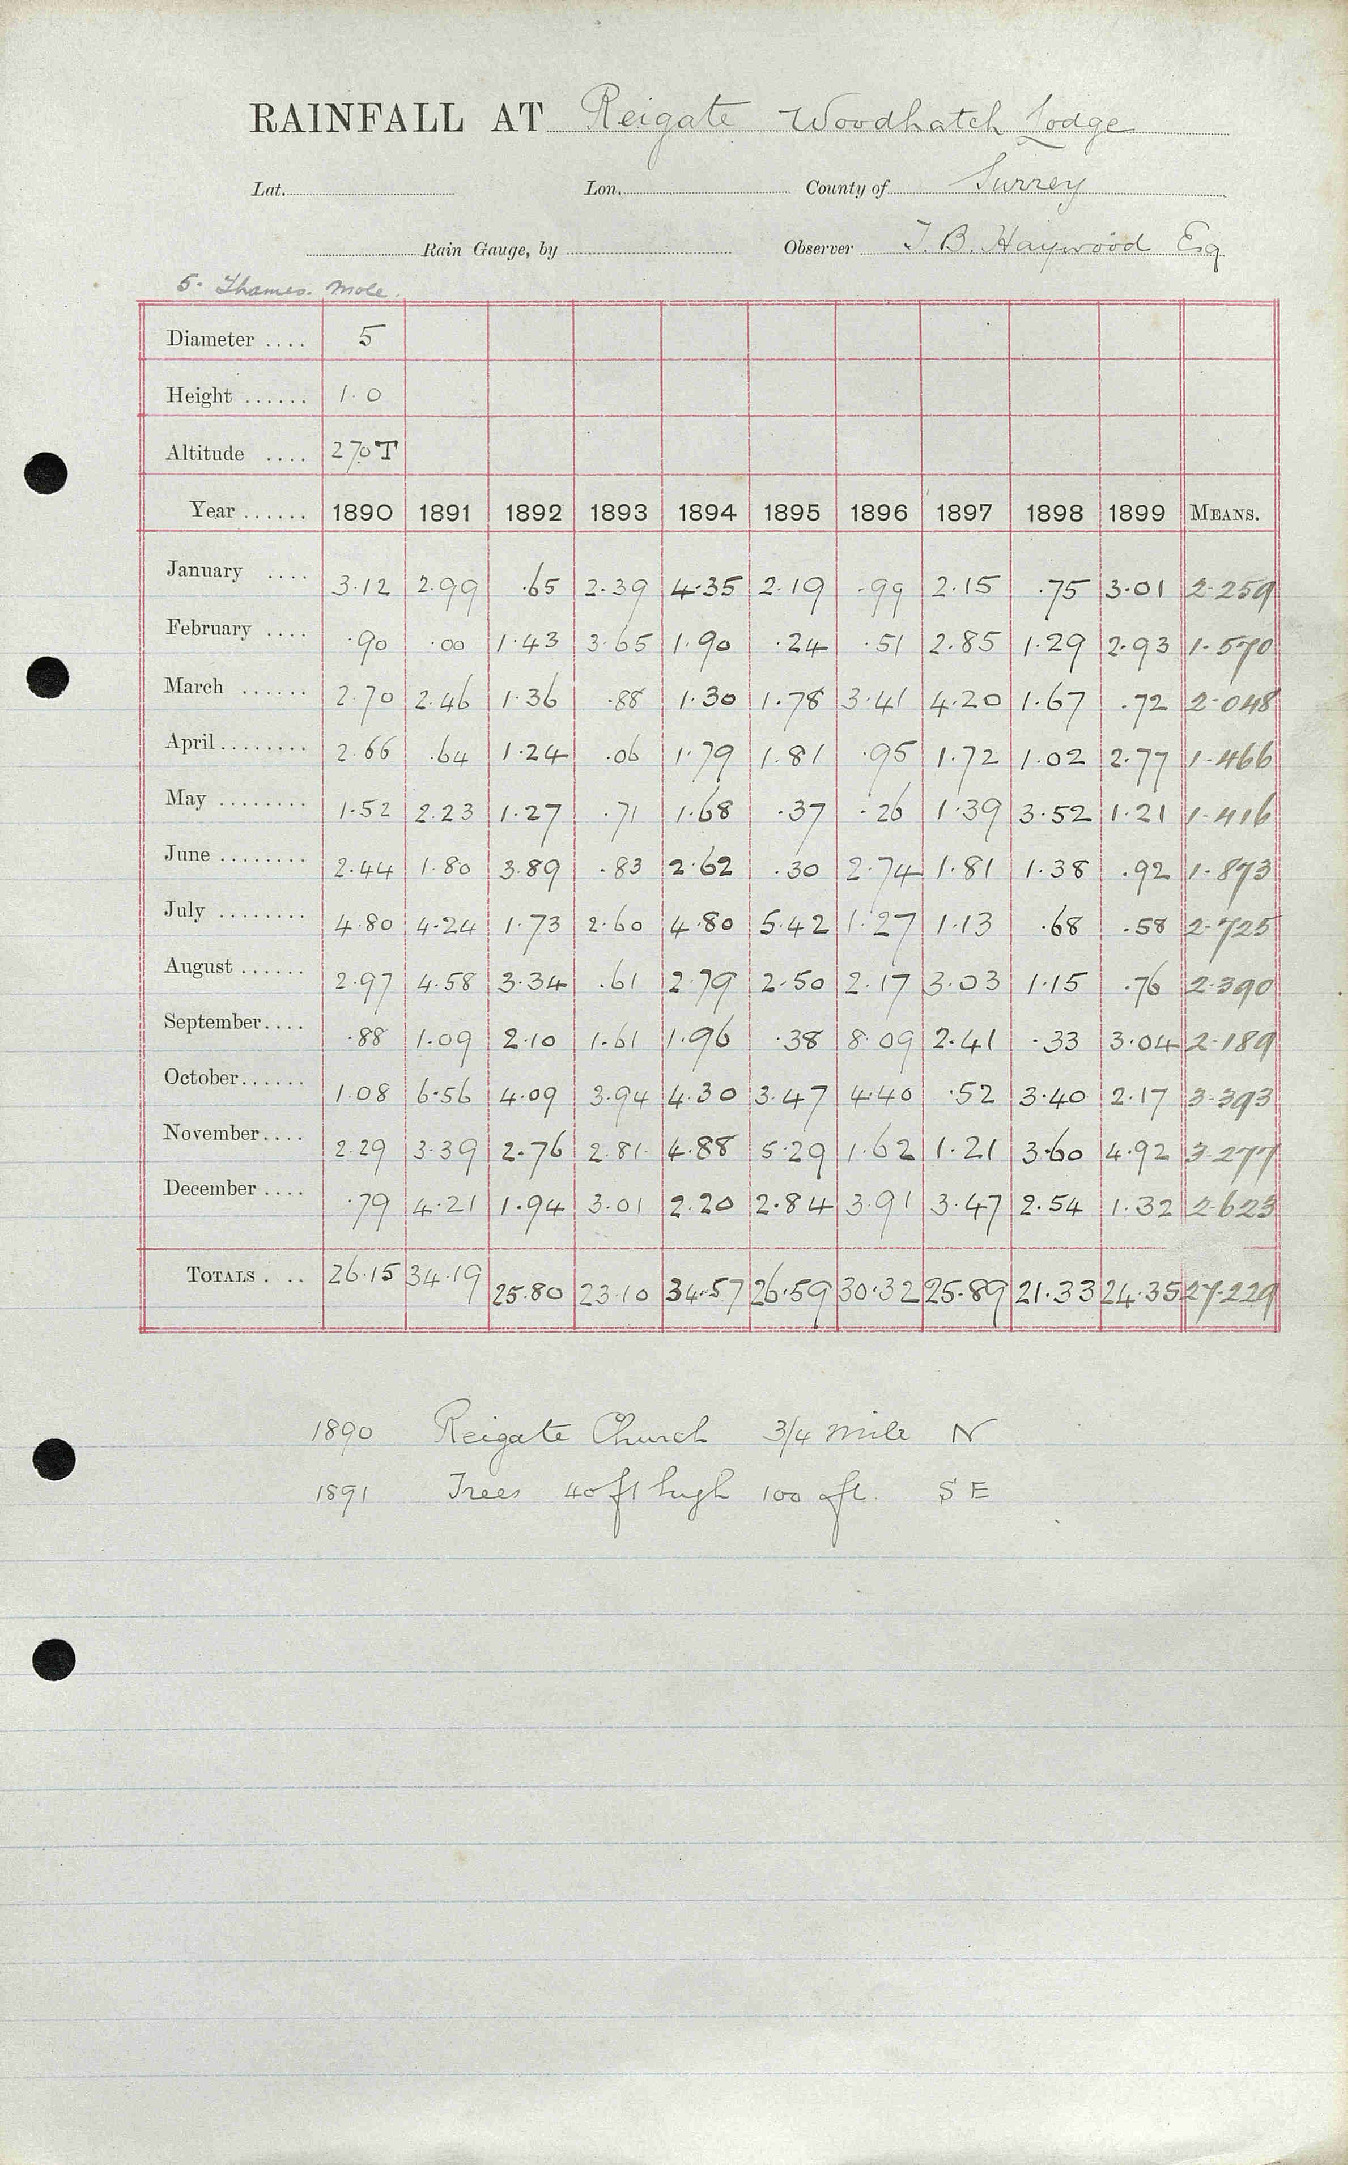 RAINFALL AT Reigate Woodhatch Lodge
Lat. Lon. County of Surrey
Rain Gauge, by Observer T. B. Haywood Esq
5. Thames. Mole.
Diameter .... 5
Height ...... 1.0
Altitude .... 270T
Year ...... 1890 1891 1892 1893 1894 1895 1896 1897 1898 1899 MEANS.
January .... 3.12 2.99 .65 2.39 4.35 2.19 .99 2.15 .75 3.01 2.259
February .... .90 .00 1.43 3.65 1.90 .24 .51 2.85 1.29 2.93 1.570
March ...... 2.70 2.46 1.36 .88 1.30 1.78 3.41 4.20 1.67 .72 2.048
April ........ 2.66 .64 1.24 .06 1.79 1.81 .95 1.72 1.02 2.77 1.466
May ........ 1.52 2.23 1.27 .71 1.68 .37 .26 1.39 3.52 1.21 1.416
June ........ 2.44 1.80 3.89 .83 2.62 .30 2.74 1.81 1.38 .92 1.873
July ........ 4.80 4.24 1.73 2.60 4.80 5.42 1.27 1.13 .68 .58 2.725
August ...... 2.97 4.58 3.34 .61 2.79 2.50 2.17 3.03 1.15 .76 2.390
September.... .88 1.09 2.10 1.61 1.96 .38 8.09 2.41 .33 3.04 2.189
October...... 1.08 6.56 4.09 3.94 4.30 3.47 4.40 .52 3.40 2.17 3.393
November.... 2.29 3.39 2.76 2.81 4.88 5.29 1.62 1.21 3.60 4.92 3.277
December .... .79 4.21 1.94 3.01 2.20 2.84 3.91 3.47 2.54 1.32 2.623
TOTALS . .. 26.15 34.19 25.80 23.10 34.57 26.59 30.32 25.89 21.33 24.35 27.229
1890 Reigate Church 3/4 mile N
1891 Trees 40 ft high 100 ft. S E